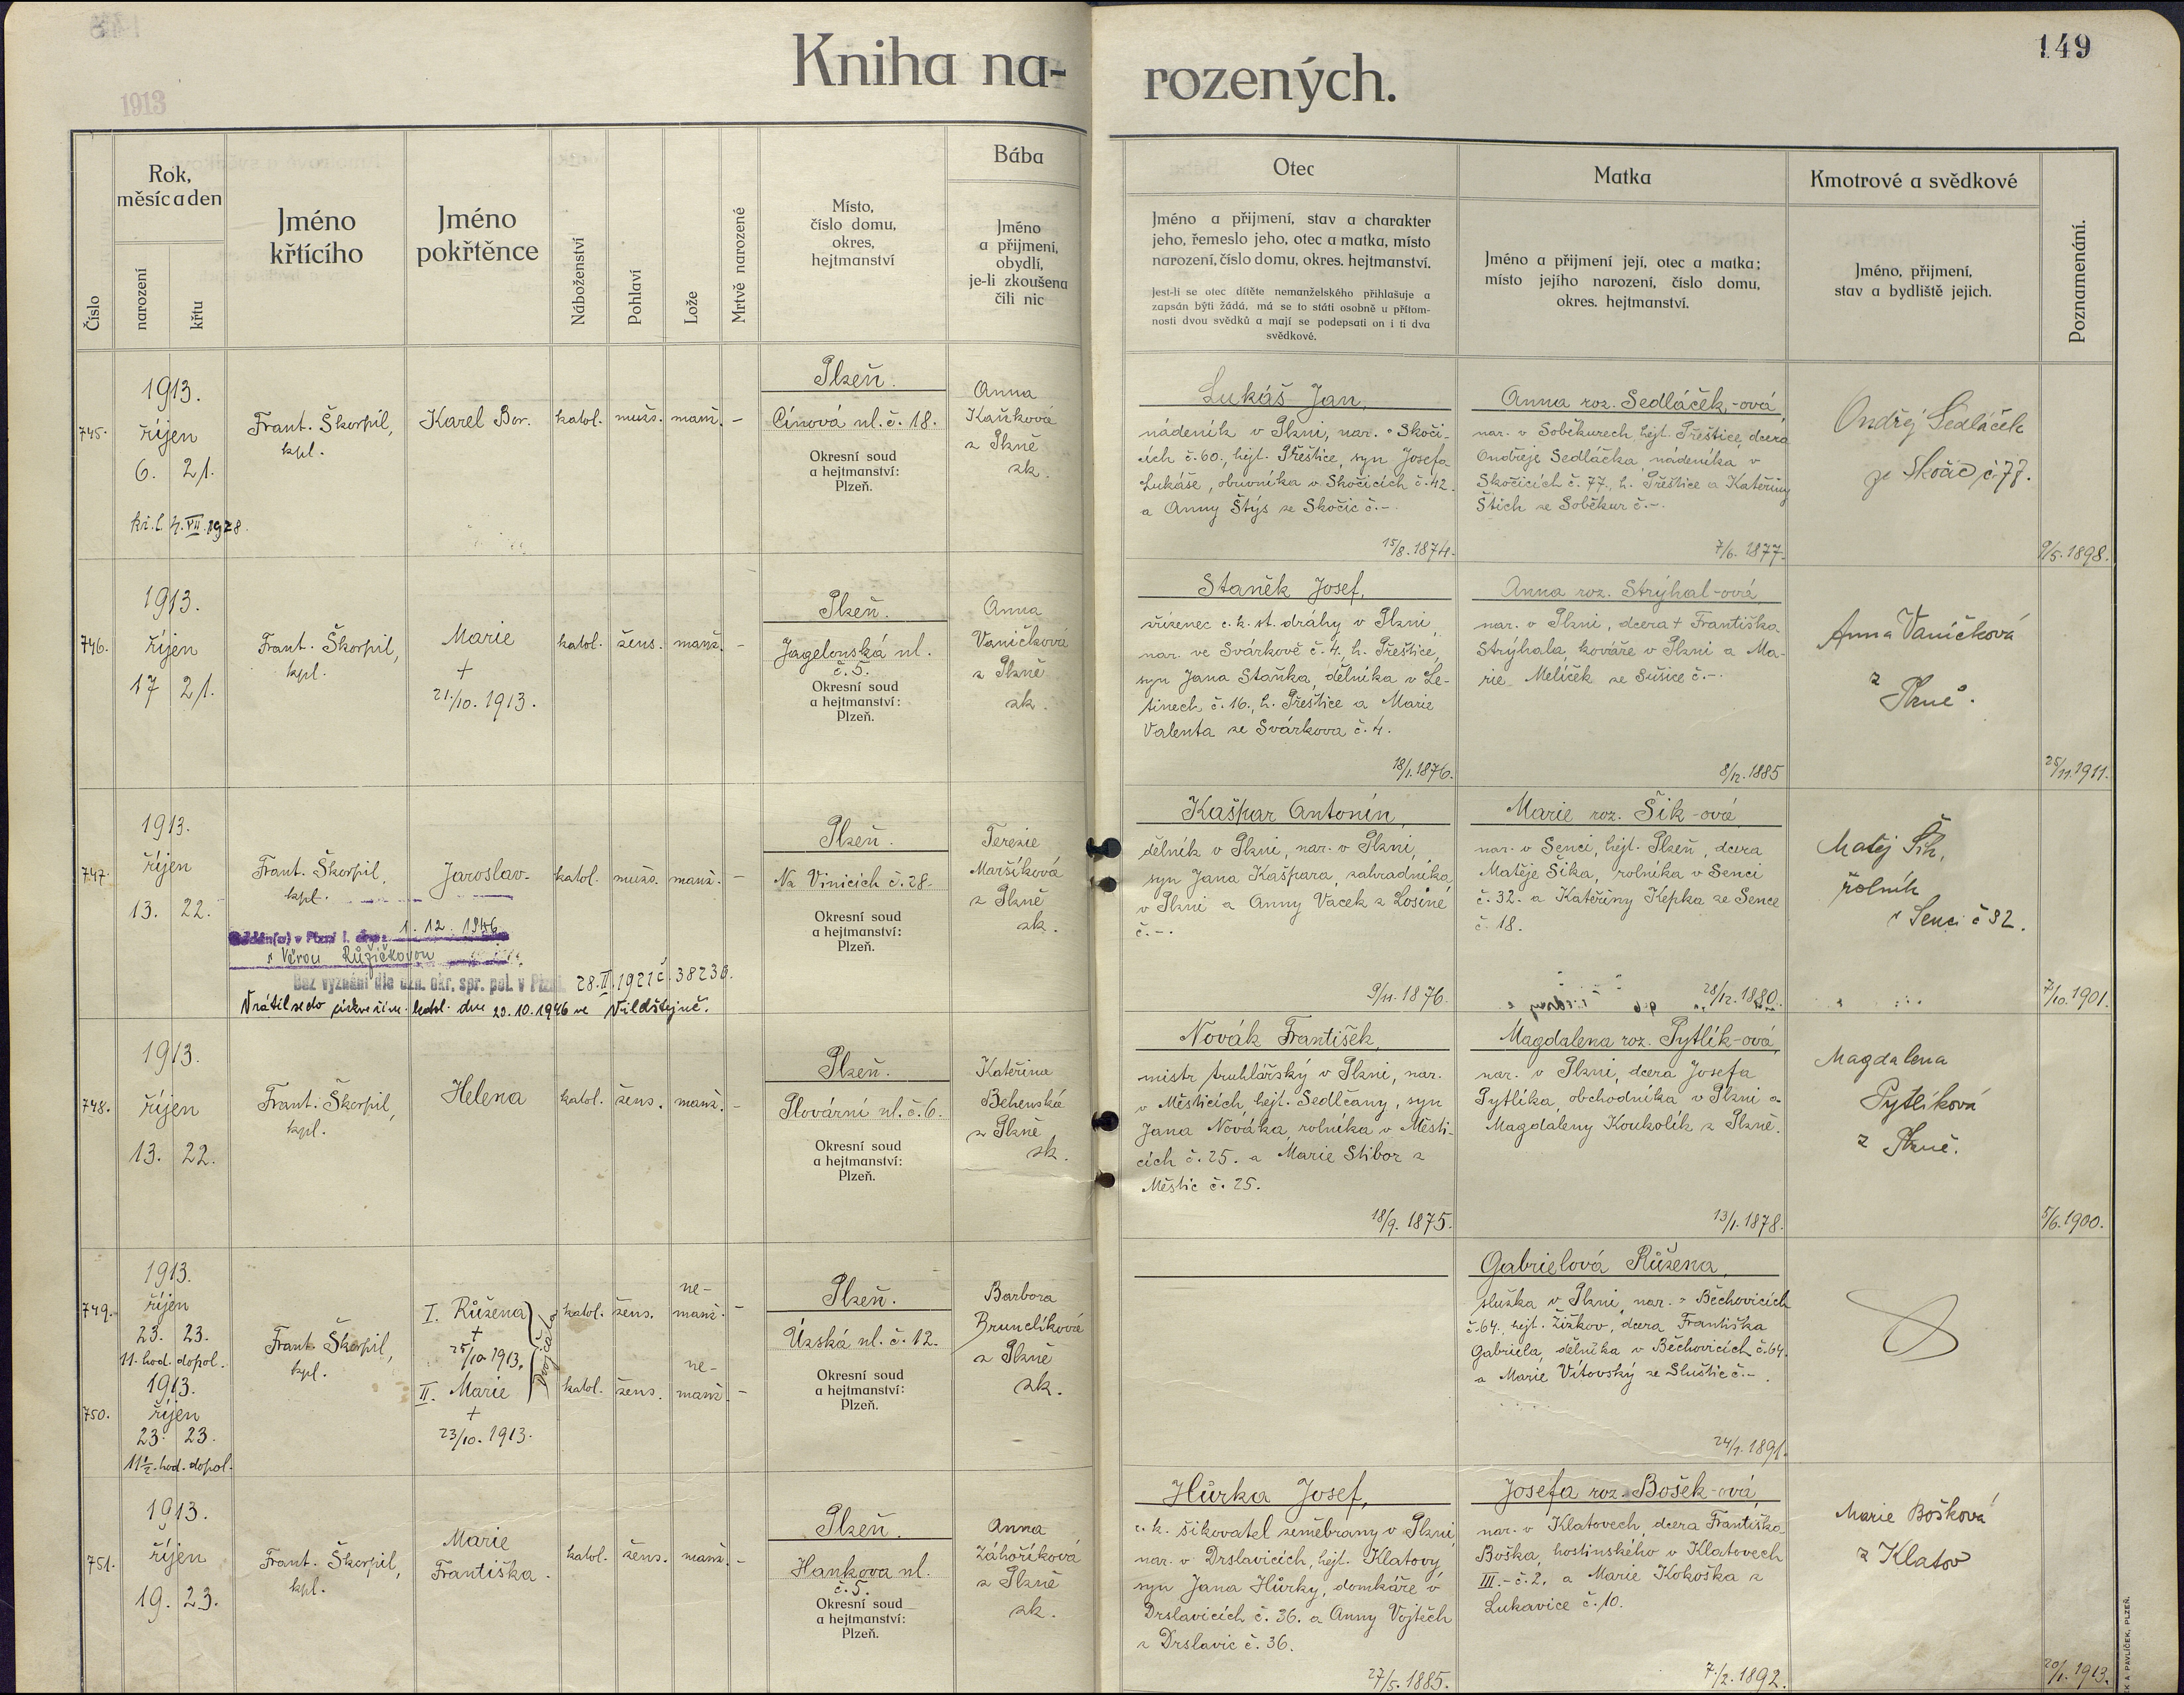 Kniha na-
rozených.
149
1913
Číslo
Rok,
měsíc a den
narození
křtu
Jméno
křtícího
Jméno
pokřtěnce
Náboženství
Pohlaví
Lože
Mrtvě narozené
Místo,
číslo domu,
okres,
hejtmanství
Bába
Jméno
a přijmení,
obydlí,
je-li zkoušena
čili nic
Otec
Jméno a přijmení, stav a charakter
jeho, řemeslo jeho, otec a matka, místo
narození, číslo domu, okres. hejtmanství.
Jest-li se otec dítěte nemanželského přihlašuje a
zapsán býti žádá, má se to státi osobně u přítom-
nosti dvou svědků a mají se podepsati on i ti dva
svědkové.
Matka
Jméno a přijmení její, otec a matka;
místo jejího narození, číslo domu,
okres. hejtmanství.
Kmotrové a svědkové
Jméno, přijmení,
stav a bydliště jejich.
Poznamenání.
745.
1913.
říjen
6. 21.
kř. l. 4.VII.1928.
Frant. Škorpil,
kpl.
Karel Bor.
katol.
mužs.
manž.
–
Plzeň.
Cínová ul. č. 18.
Okresní soud
a hejtmanství:
Plzeň.
Anna
Kaňková
z Plzně
zk.
Lukáš Jan,
nádeník v Plzni, nar. v Skoči-
cích č. 60., hejt. Přeštice, syn Josefa
Lukáše, obuvníka v Skočicích č. 42.
a Anny Štýs ze Skočic č. –.
15/8. 1874.
Anna roz. Sedláček-ová,
nar. v Soběkurech, hejt. Přeštice, dcera
Ondřeje Sedláčka, nádeníka v
Skočicích č. 77., h. Přeštice a Kateřiny
Štich ze Soběkur č. –.
7/6. 1877.
Ondřej Sedláček
ze Skočic č. 77.
9/5. 1898.
746.
1913.
říjen
17 21.
Frant. Škorpil,
kpl.
Marie
+
21./10. 1913.
katol.
žens.
manž.
–
Plzeň.
Jagelonská ul.
č. 5.
Okresní soud
a hejtmanství:
Plzeň.
Anna
Vaničková
z Plzně
zk.
Staněk Josef,
zřízenec c. k. st. dráhy v Plzni,
nar. ve Svárkově č. 4., h. Přeštice,
syn Jana Staňka, dělníka v Le-
tinech č. 16., h. Přeštice a Marie
Valenta ze Svárkova č. 4.
18/1. 1876.
Anna roz. Strýhal-ová,
nar. v Plzni, dcera + Františka
Strýhala, kováře v Plzni a Ma-
rie Melíček ze Sušice č. –.
8/12. 1885
Anna Vaníčková
z
Plzně.
25/11. 1911.
747.
1913.
říjen
13. 22.
Frant. Škorpil,
kpl.
Jaroslav
1. 12. 1946
s Věrou Růžičkovou
Bez vyznání dle ozn. okr. spr. pol. v Plzni 28.II.1921 č. 38230.
Vrátil se do církve řím. katol. dne 20.10.1946 ve Vildštejně.
katol.
mužs.
manž.
–
Plzeň.
Na Vinicích č. 28.
Okresní soud
a hejtmanství:
Plzeň.
Terezie
Maršíková
z Plzně
zk.
Kašpar Antonín,
dělník v Plzni, nar. v Plzni,
syn Jana Kašpara, zahradníka
v Plzni a Anny Vacek z Losiné
č. –.
9/11. 1876.
Marie roz. Šik-ová,
nar. v Senci, hejt. Plzeň, dcera
Matěje Šika, rolníka v Senci
č. 32. a Kateřiny Kepka ze Sence
č. 18.
28/12. 1880.
Matěj Šik,
rolník
v Senci č 32.
7/10. 1901.
748.
1913.
říjen
13. 22.
Frant. Škorpil,
kpl.
Helena
katol.
žens.
manž.
–
Plzeň.
Plovární ul. č. 6.
Okresní soud
a hejtmanství:
Plzeň.
Kateřina
Behenská
z Plzně
zk.
Novák František,
mistr truhlářský v Plzni, nar.
v Městicích, hejt. Sedlčany, syn
Jana Nováka, rolníka v Městi-
cích č. 25. a Marie Stibor z
Městic č. 25.
18/9. 1875.
Magdalena roz. Pytlík-ová,
nar. v Plzni, dcera Josefa
Pytlíka, obchodníka v Plzni a
Magdaleny Koukolík z Plzně.
13/1. 1878.
Magdalena
Pytlíková
z Plzně.
5/6. 1900.
749.
1913.
říjen
23. 23.
11. hod. dopol.
750.
1913.
říjen
23. 23.
11 1/2. hod. dopol.
Frant. Škorpil,
kpl.
I. Růžena
+
25/10 1913.
II. Marie
+
23/10. 1913.
Dvojčata
katol.
žens.
ne-
manž.
–
katol.
žens.
ne-
manž.
–
Plzeň.
Úzská ul. č. 12.
Okresní soud
a hejtmanství:
Plzeň.
Barbora
Brunclíková
z Plzně
zk.
Gabrielová Růžena,
služka v Plzni, nar. v Běchovicích
č. 64. hejt. Žižkov, dcera Františka
Gabriela, dělníka v Běchovicích č. 64.
a Marie Vítovský ze Sluštic č. –.
24/7. 1891.
751.
1913.
říjen
19. 23.
Frant. Škorpil,
kpl.
Marie
Františka.
katol.
žens.
manž.
–
Plzeň.
Hankova ul.
č. 5.
Okresní soud
a hejtmanství:
Plzeň.
Anna
Záhoříková
z Plzně
zk.
Hůrka Josef,
c. k. šikovatel zeměbrany v Plzni,
nar. v Drslavicích, hejt. Klatovy,
syn Jana Hůrky, domkáře v
Drslavicích č. 36. a Anny Vojtěch
z Drslavic č. 36.
27/5. 1885.
Josefa roz. Bošek-ová,
nar. v Klatovech, dcera Františka
Boška, hostinského v Klatovech
III. – č. 2. a Marie Kokoška z
Lukavice č. 10.
7./2. 1892.
Marie Bošková
z Klatov
20/1. 1913.
A PAVLÍČEK, PLZEŇ.